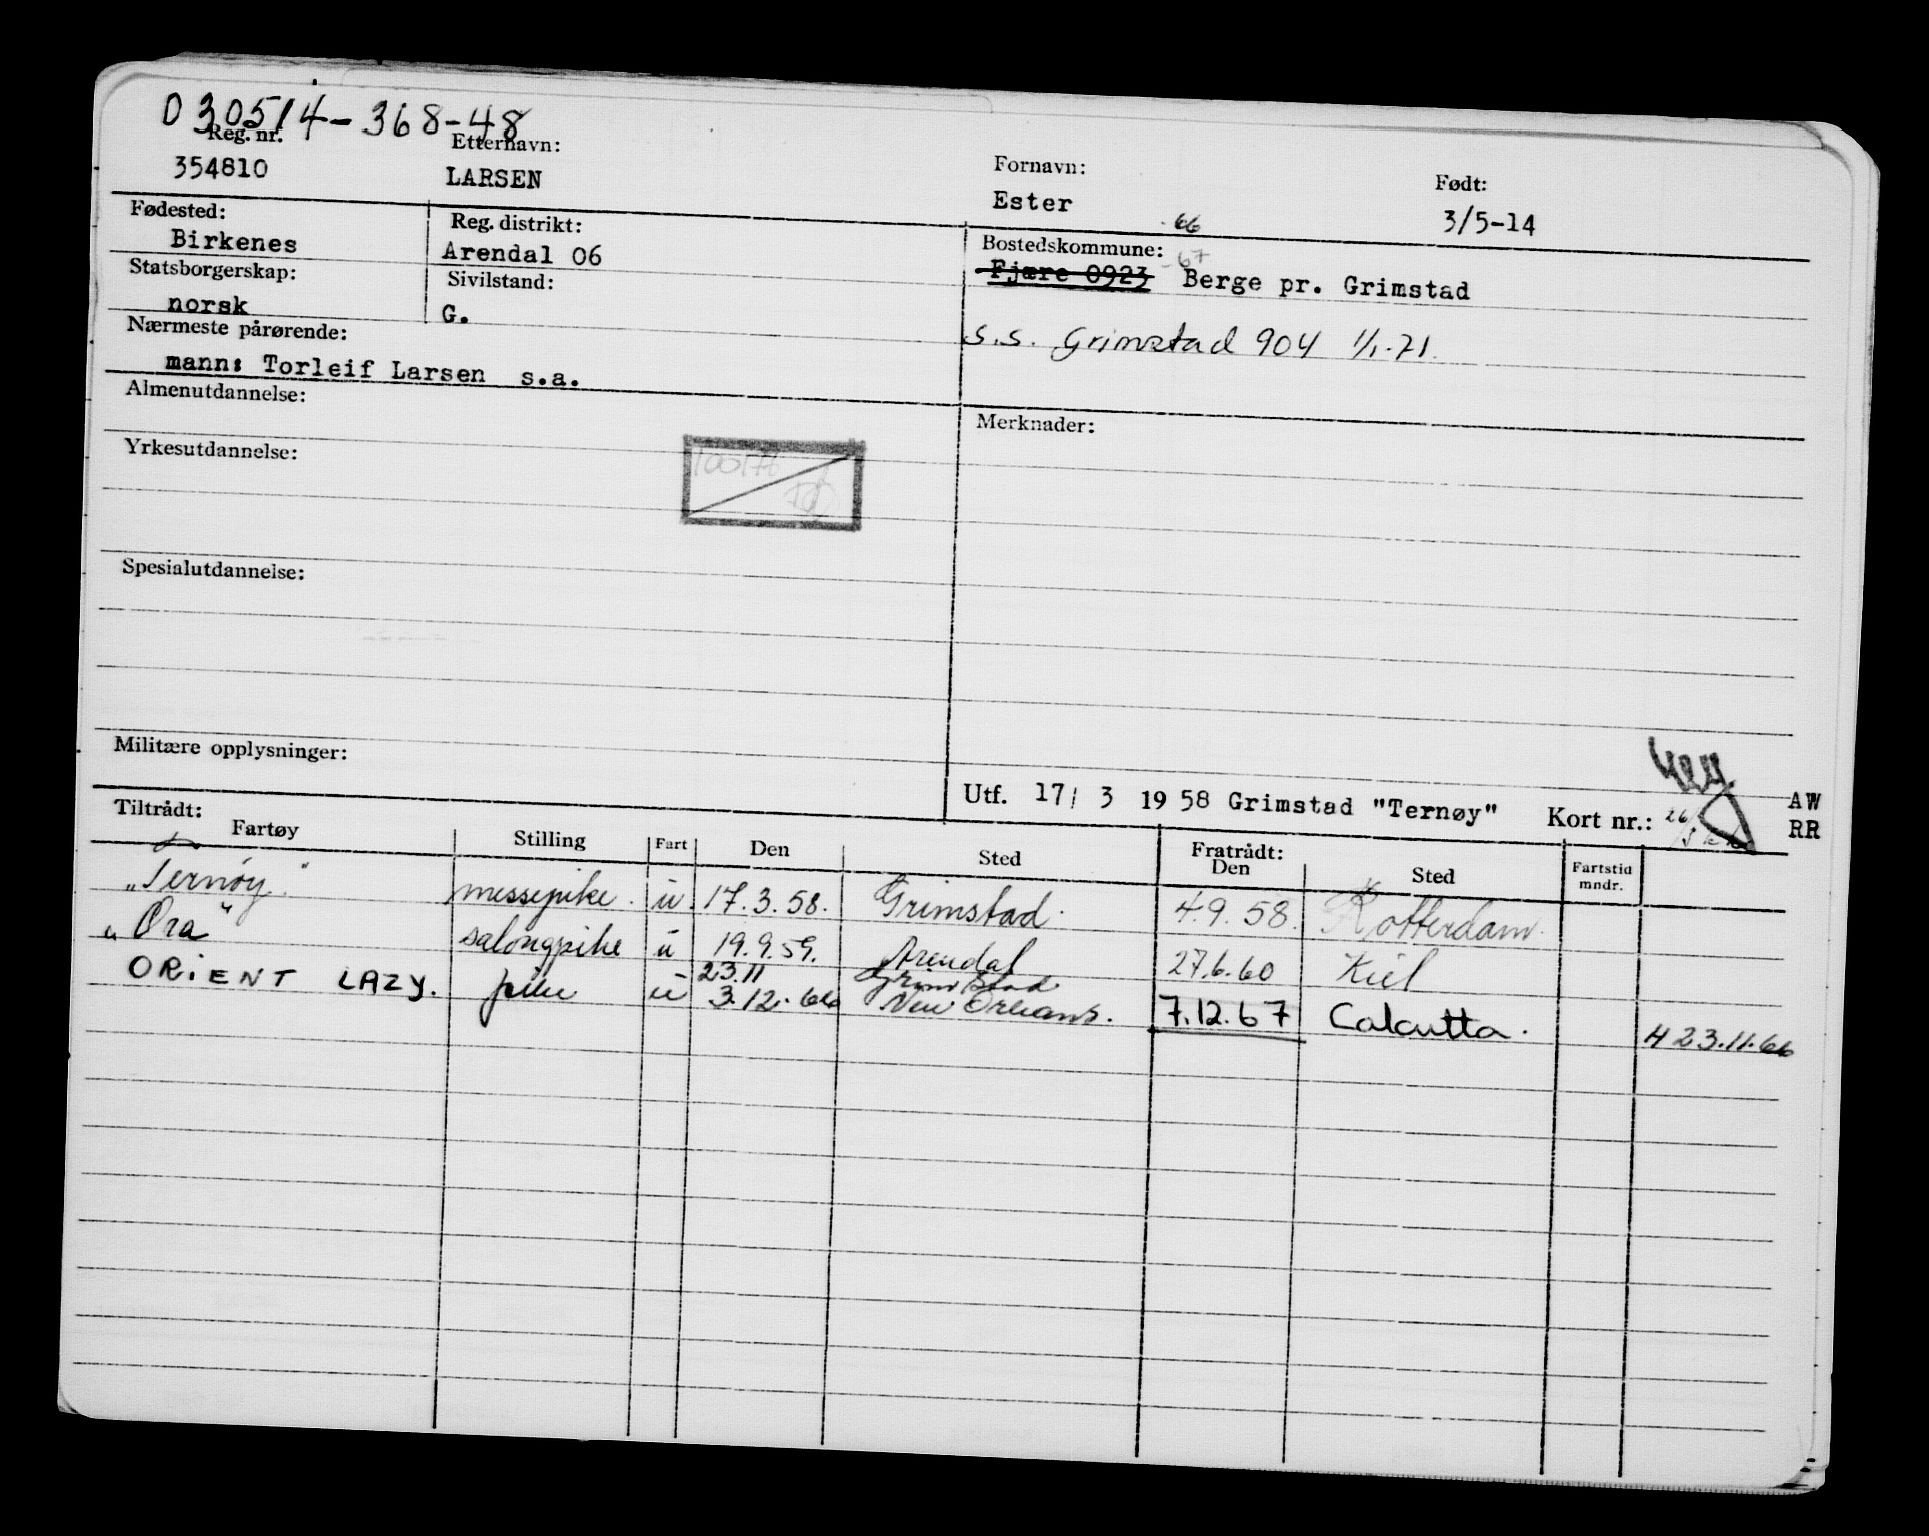 030514-368-48
Reg. nr. Etternavn: Fornavn: Født:
354810 LARSEN Ester 3/5-14
Fødested: Reg. distrikt: Bostedskommune: -66
Birkenes Arendal 06 Fjære 0923 -67 Berge pr. Grimstad
Statsborgerskap: Sivilstand:
norsk G.
s.s. Grimstad 904 1/1-71.
Nærmeste pårørende:
mann: Torleif Larsen s.a.
Almenutdannelse: Merknader:
Yrkesutdannelse:
Spesialutdannelse:
Militære opplysninger:
Utf. 17/ 3 1958 Grimstad "Ternøy" Kort nr.: AW
RR
Tiltrådt: Fratrådt:
Fartøy Stilling Fart Den Sted Den Sted Fartstid mndr.
"Ternøy" messepike. u. 17.3.58. Grimstad. 4.9.58. Rotterdam.
"Ora" salongpike u 19.9.59. Arendal 27.6.60 Kiel
23.11 Grimstad
ORIENT LAZY. pike u 3.12.66 New Orleans. 7.12.67 Calcutta. 4 23.11.66